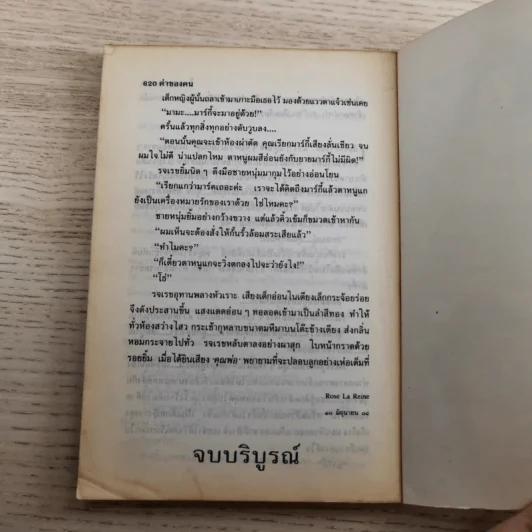 620 ค่าของคน
เด็กหญิงผู้นั้นถลาเข้ามาเกาะมือเธอไว้ มองด้วยแววตาแจ๋วเช่นเคย
“มามะ....มาร์กี้จะมาอยู่ด้วย!”
ครั้นแล้วทุกสิ่งทุกอย่างดับวูบลง....
“ตอนนั้นคุณจะเข้าห้องผ่าตัด คุณเรียกมาร์กี้เสียงลั่นเชียว จน
ผมใจไม่ดี น่าแปลกไหม ตาหนูผมสีอ่อนยังกับยายมาร์กี้ไม่มีผิด!”
รจเรขยิ้มนิด ๆ ดึงมือชายหนุ่มมากุมไว้อย่างอ่อนโยน
“เรียกแกว่ามาร์คเถอะค่ะ เราจะได้คิดถึงมาร์กี้แล้วตาหนูแก
ยังเป็นเครื่องหมายรักของเราด้วย ใช่ไหมคะ?”
ชายหนุ่มยิ้มอย่างกว้างขวาง แต่แล้วคิ้วเข้มก็ขมวดเข้าหากัน
“ผมเห็นจะต้องสั่งให้กั้นรั้วล้อมสระเสียแล้ว”
“ทำไมคะ?”
“ก็เดี๋ยวตาหนูแกจะวิ่งตกลงไปจะว่ายังไง!”
“โธ่”
รจเรขอุทานพลางหัวเราะ เสียงเด็กอ่อนในเตียงเล็กกระจ้อยร่อย
จึงดังประสานขึ้น แสงแดดอ่อน ๆ ทอลอดเข้ามาเป็นลำสีทอง ทำให้
ทั่วห้องสว่างไสว กระเช้ากุหลาบขนาดมหึมาบนโต๊ะข้างเตียง ส่งกลิ่น
หอมกระจายไปทั่ว รจเรขหลับตาลงอย่างผาสุก ใบหน้ากราดด้วย
รอยยิ้ม เมื่อได้ยินเสียง คุณพ่อ พยายามที่จะปลอบลูกอย่างเห่อเต็มที่
Rose La Reine
๑๐ มิถุนายน ๐๘
จบบริบูรณ์